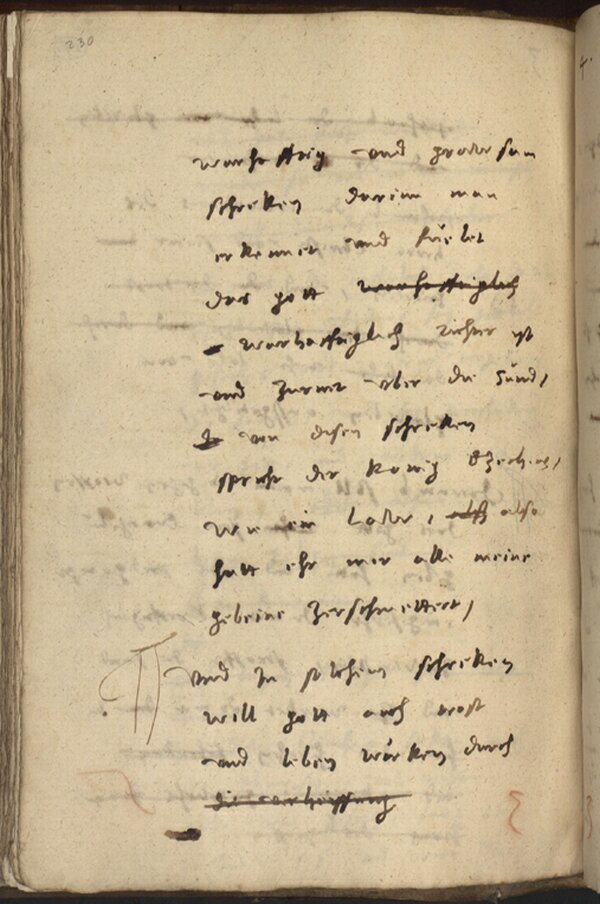 230
warhafftig und grausam
schreken darinn man
erkennet und fuelet
das gott warhafftiglich
warhafftiglich richter ist
und zurnet uber die Sünd /
von disen schreken
spricht der konig Ezechias /
wie ein Lawe / also
hatt ehr mir alle meine
gebeine zerschmettert /
Und In solchem schreken
will gott auch trost
und leben würken durch
die verheissung